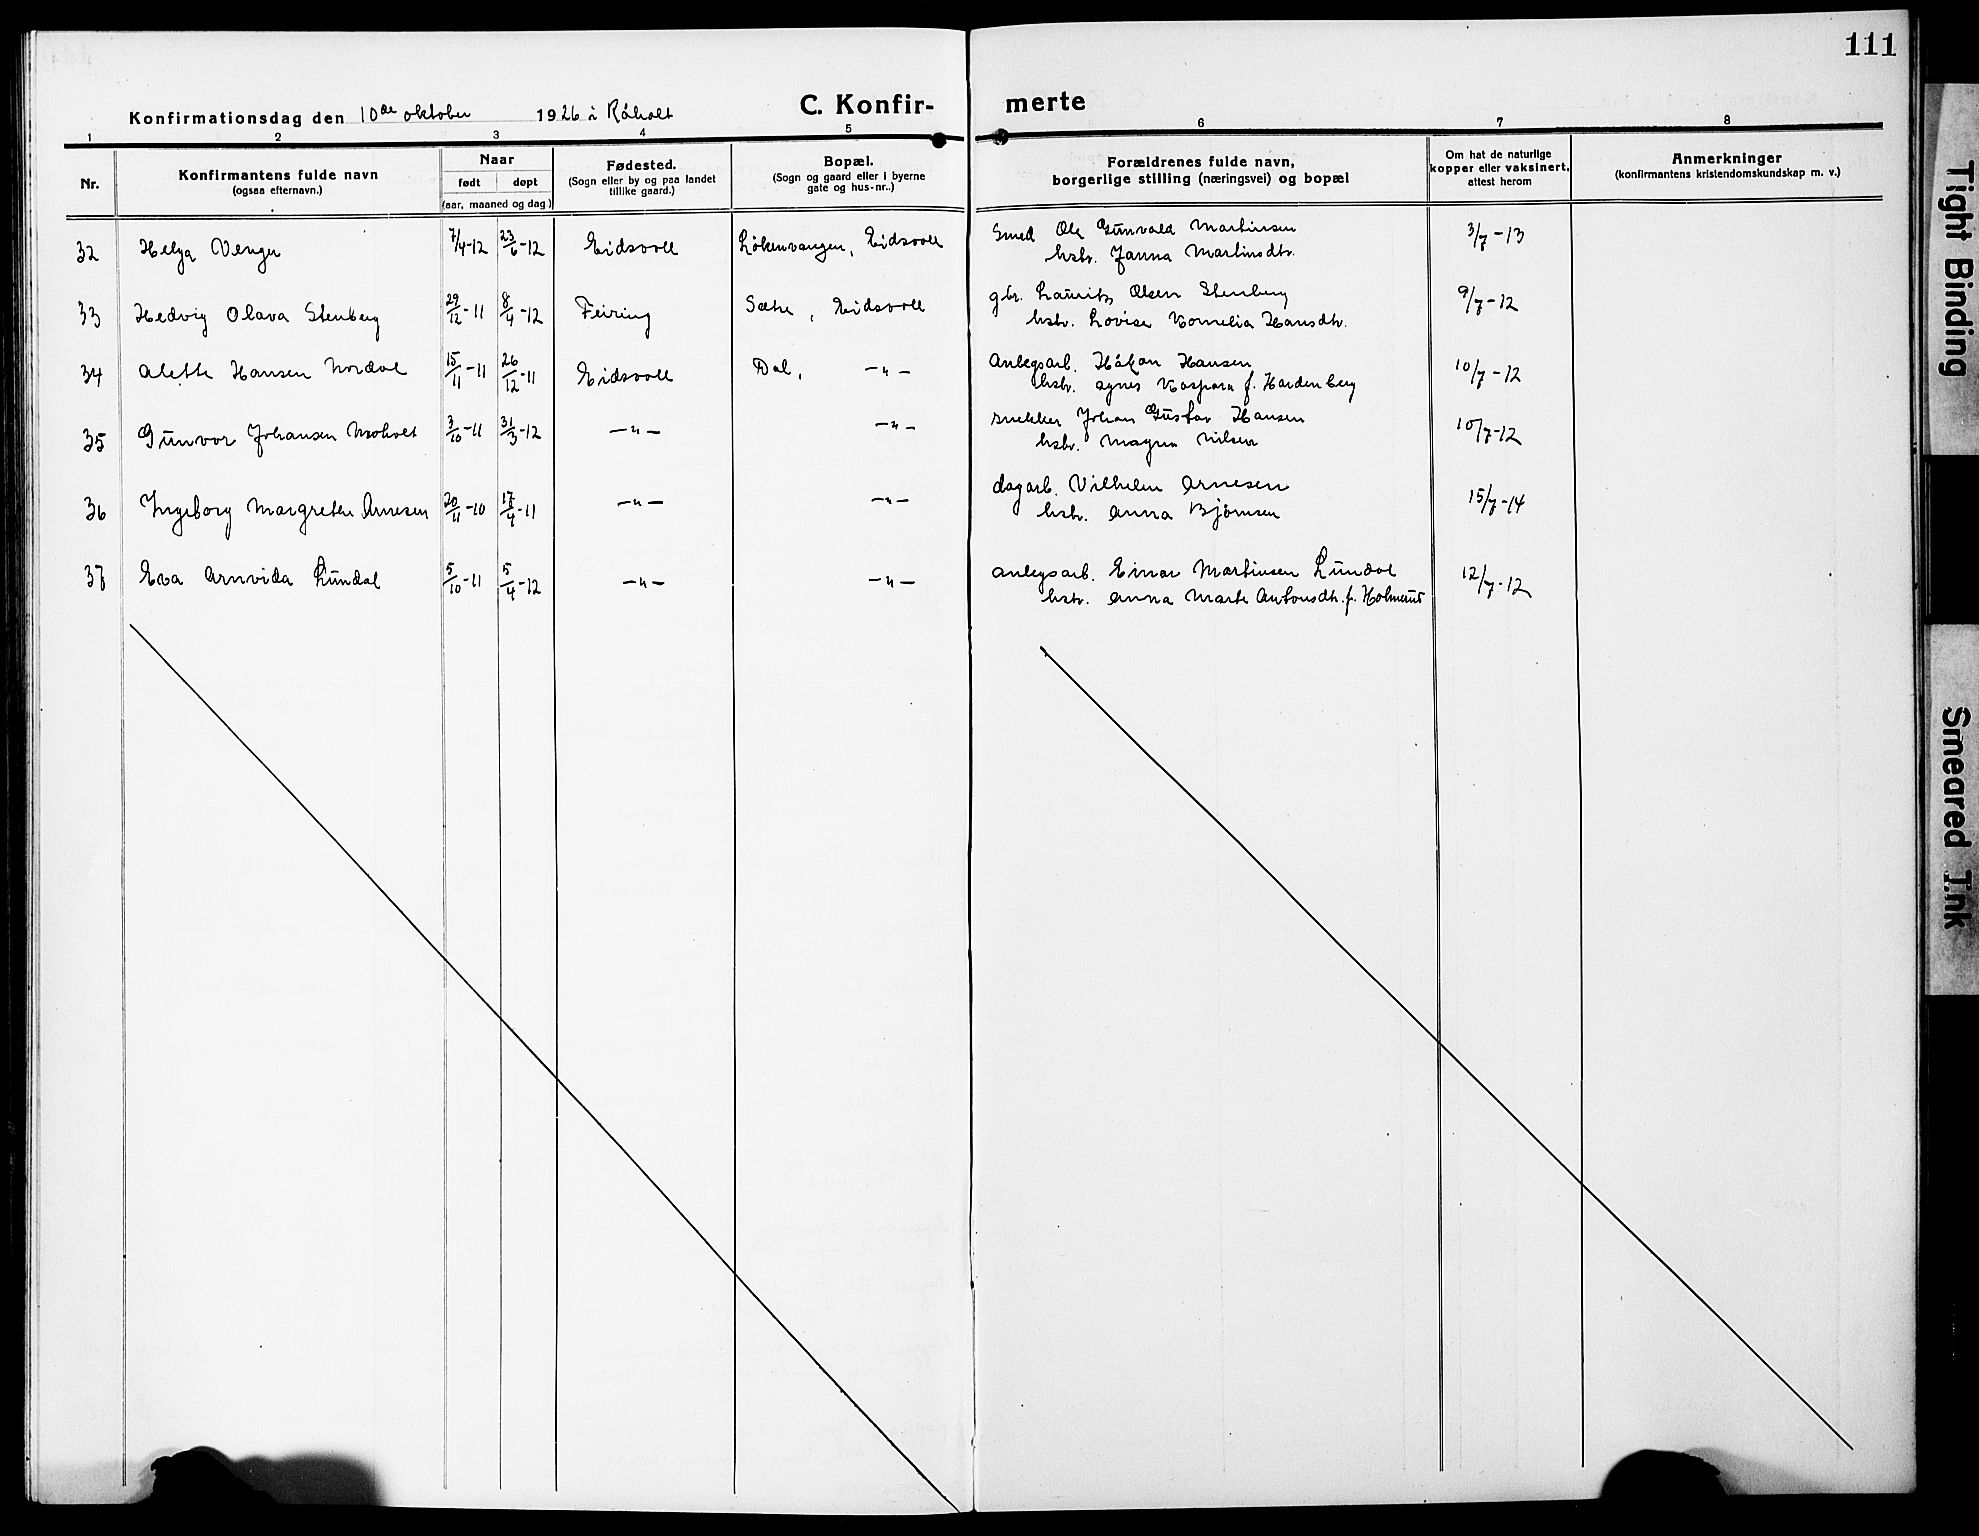 111
Konfirmationsdag den 10de oktober 1926 i Råholt
C. Konfir- merte
1 2 3 4 5 6 7 8
Nr.
Konfirmantens fulde navn
(ogsaa efternavn.)
Naar
født døpt
(aar, maaned og dag)
Fødested.
(Sogn eller by og paa landet
tillike gaard.)
Bopæl.
(Sogn og gaard eller i byerne
gate og hus-nr..)
Forældrenes fulde navn,
borgerlige stilling (næringsvei) og bopæl
Om hat de naturlige
kopper eller vaksinert,
attest herom
Anmerkninger
(konfirmantens kristendomskundskap m. v.)
32 Helga Venger 7/4-12 23/6-12 Eidsvoll Løkenvangen, Eidsvoll Smed Ole Gunvald Martinsen 3/7-13
hstr. Janna Martinsdtr.
33 Hedvig Olava Stenberg 29/12-11 8/4-12 Feiring Sætre, Eidsvoll gbr. Lauritz Olsen Stenberg 9/7-12
hstr. Lovise Kornelia Hansdtr.
34 Alette Hansen Nordal 15/11-11 26/12-11 Eidsvoll Dal, -"- Anlegsarb. Håkon Hansen 10/7-12
hstr. Agnes Kaspara f. Hardenberg
35 Gunvor Johansen Moholt 3/10-11 31/3-12 -"- -"- snekker Johan Gustav Hansen 10/7-12
hstr. Magna Nilsen
36 Ingeborg Margrethe Arnesen 20/11-10 17/4-11 -"- -"- dagarb. Vilhelm Arnesen 15/7-14
hstr. Anna Bjørnsen
37 Eva Arnvida Lundal 5/10-11 5/4-12 -"- -"- anlegsarb. Einar Martinsen Lundal 12/7-12
hstr. Anna Marte Antonsdtr. f.
Tight Binding
Smeared Ink